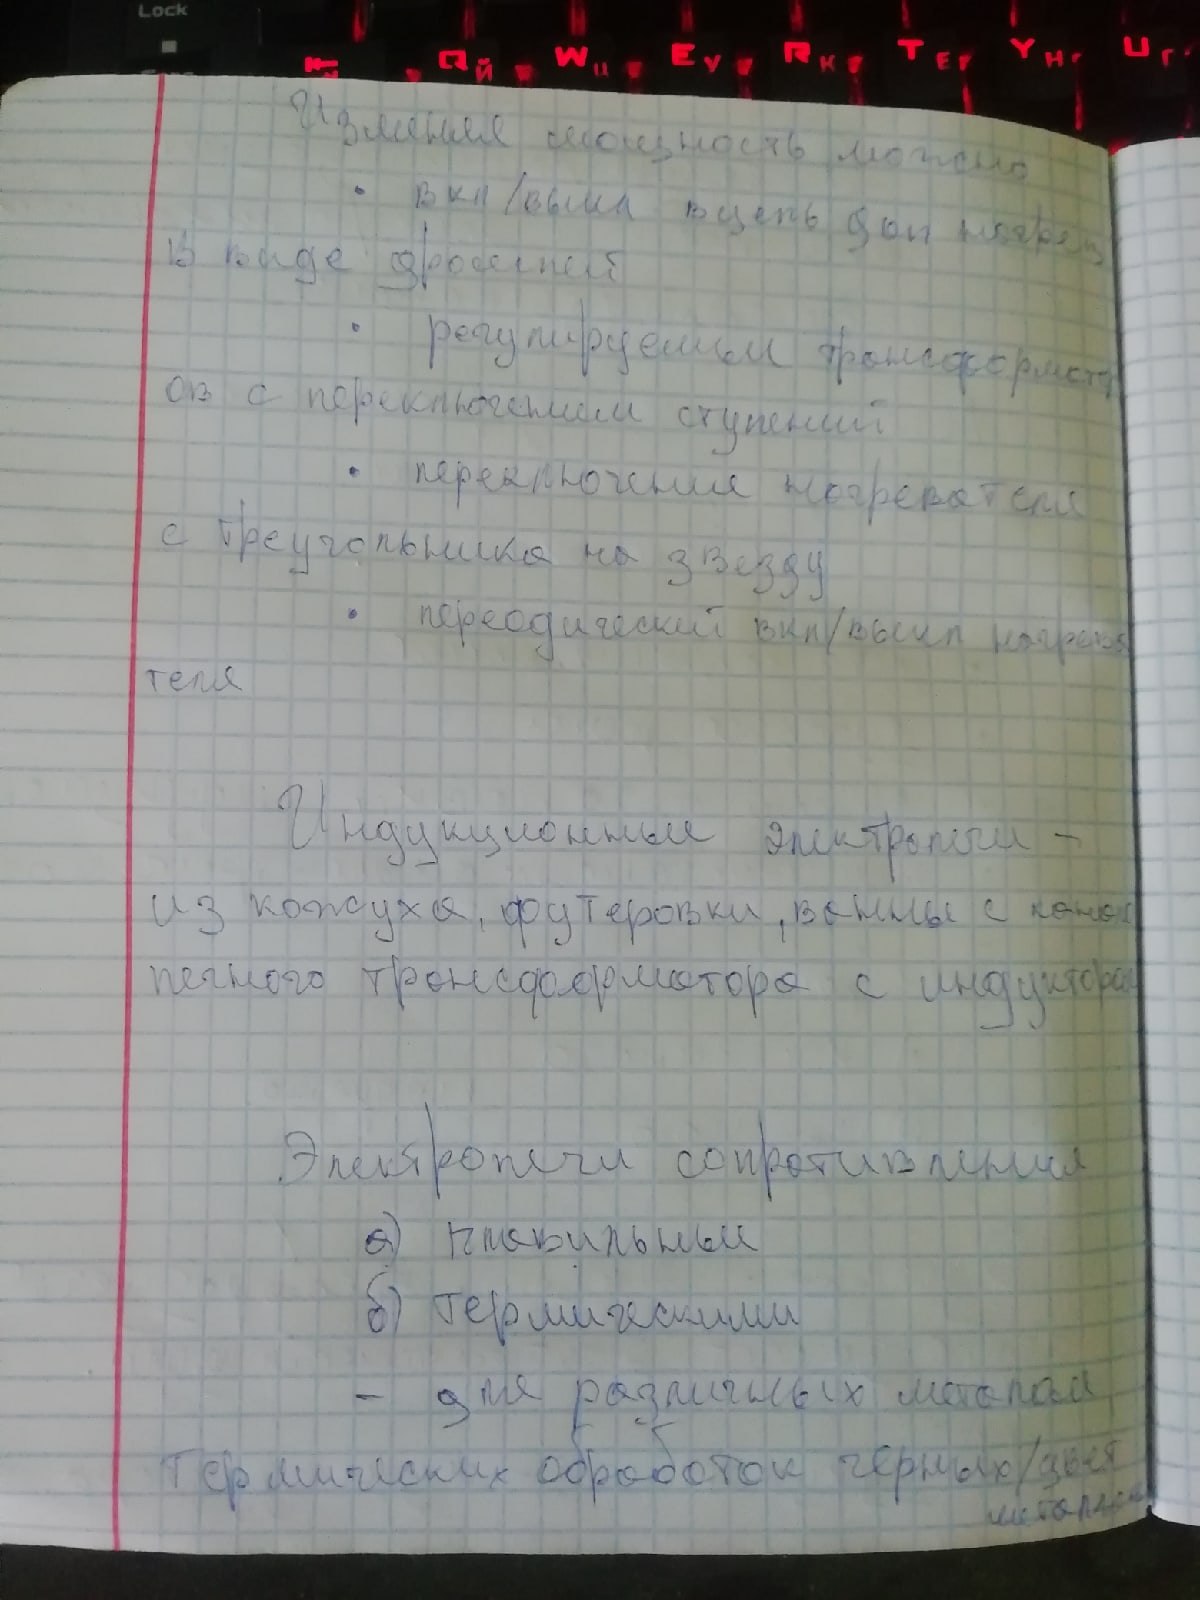 Lock
Q Й W Ц E У R К T Е Y Н U Г
Изменяя мощность можно
• вкл/выкл в цепь доп нагрев
в виде дросселей
• регулируемым трансформатор
ов с переключением ступений
• переключение нагревателя
с треугольника на звезду
• переодический вкл/выкл нагрева
теля
Индукционные электропечи –
из кожуха, футеровки, ванны с
печного трансформатора с индуктором
Электропечи сопротивления
а) плавильные
б) термическими
– для различных
термических обработок черных/цвет
металлов